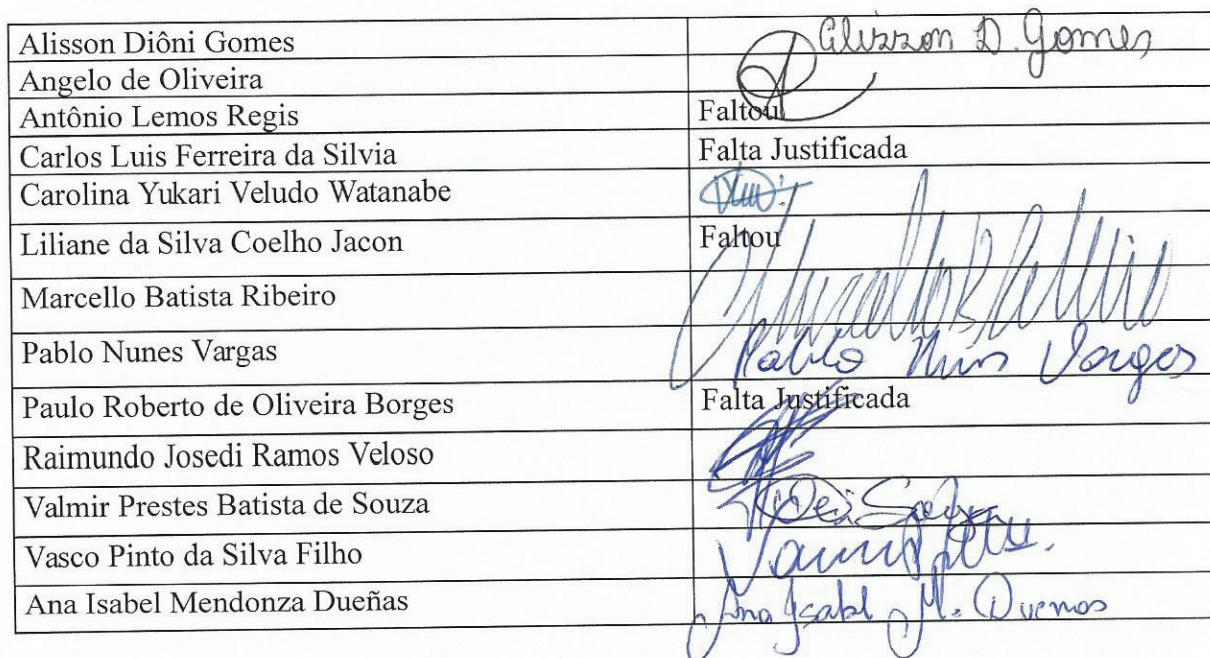 Alisson Diôni Gomes Alisson D. Gomes
Angelo de Oliveira
Antônio Lemos Regis Faltou
Carlos Luis Ferreira da Silvia Falta Justificada
Carolina Yukari Veludo Watanabe
Liliane da Silva Coelho Jacon Faltou
Marcello Batista Ribeiro
Pablo Nunes Vargas Pablo Nunes Vargas
Paulo Roberto de Oliveira Borges Falta Justificada
Raimundo Josedi Ramos Veloso
Valmir Prestes Batista de Souza
Vasco Pinto da Silva Filho
Ana Isabel Mendonza Dueñas Ana Isabel M. Duenas